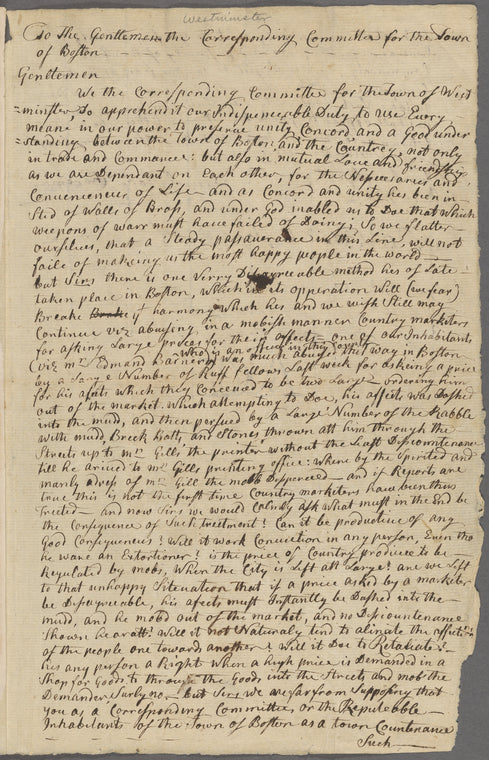 Westminster
To The Gentlemen the Corresponding Committee for the Town
of Boston
Gentlemen
We the Corresponding Committee for the Town of West
=minster Do apprehend it our Indispenceable Duty to use Every
meane in our power to preserve unity Concord and a Good under
=standing between the Town of Boston and the Countrey, not only
in trade and Commerce: but also in mutual Love and friendship
as we are Dependant on Each other, for the Nececsaries and
Conveniences of Life — and as Concord and unity hes been in
Sted of Walls of Brass, and under God inabled us to Doe that which
weepons of warr must have failed of Doing, So we flatter —
ourselves, that a Steady passaverance in this Line, will not
faile of making us the most happy people in the world —
but Sirs there is one Verry Disagreeable method hes of Late
taken place in Boston, Which in its opperation Will (we fear)
Breake Brake ye harmony which hes and we wish Still may
Continue viz abusing in a mobish manner Country marketers
for asking Large prices for their affects — one of our Inhabitants
who is an officer in this County
(viz mr Edmand Barnerd) was much abused that way in Boston
by a Large Number of Ruff fellows Last week for asking a price
for his afects which they Conceived to be two Large — ordering him
out of the market. Which attempting to Doe, his affects was Dashed
into the mudd, and then persued by a Large Number of the Rabble
with mudd, Breek Batts, and Stones thrown att him through the
Streets up to mr Gills the printer without the Least Discountenance
till he arived to mr Gills printing office: where by the Spirited and
manly adress of mr Gill the mobb Dispereced — and if Reports are
true this is not the first time Country marketers have been thus
Treeted — and now Sirs we would Calmly ask what must in the End be
the Consequence of Such treetment? Can it be productive of any
Good Consequences? Will it work Conviction in any person, Even tho
he ware an Extortioner? is the price of Country produce to be —
Regulated by mobs, When the City is Left att Large? are we Left
to that unhappy Sitevation that if a price asked by a marketer
be Disagreeable, his afects must Instantly be Dashed into the —
mudd, and he mobd out of the market, and no Discountenance
Shown he ratt? Will it not Naturaly tend to alinate the affecti=
of the people one toward another? Will it Doe to Retaliate? —
hes any person a Right When a high price is Demanded in a
Shop for Goods to through the Goods into the Streets and mob the
Demander, Surly no — but Sirs we are far from Supposing that
you as a Corresponding Committee or the Reputebble —
Inhabitants of the Town of Boston as a town Countenance
Such —